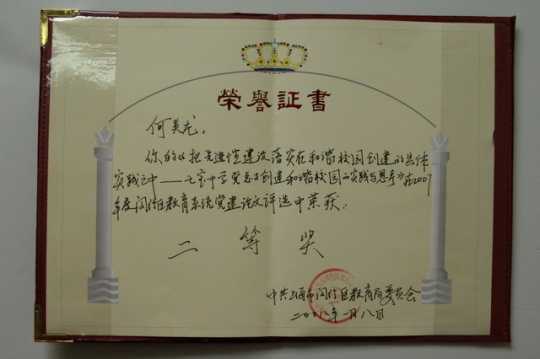 荣誉証書
何美龙:
你的《把先进性建设落实在和谐校园创建的具体
实践之中——七宝中学党总支创建和谐校园的实践与思考》在2007
年度闵行区教育系统党建论文评选中荣获:
二等奖
中共上海市闵行区教育局委员会
二〇〇八年一月八日